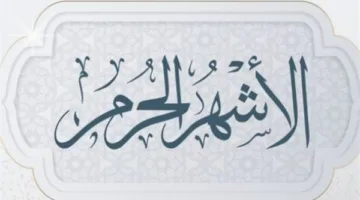 الأشْهُر الحُرم